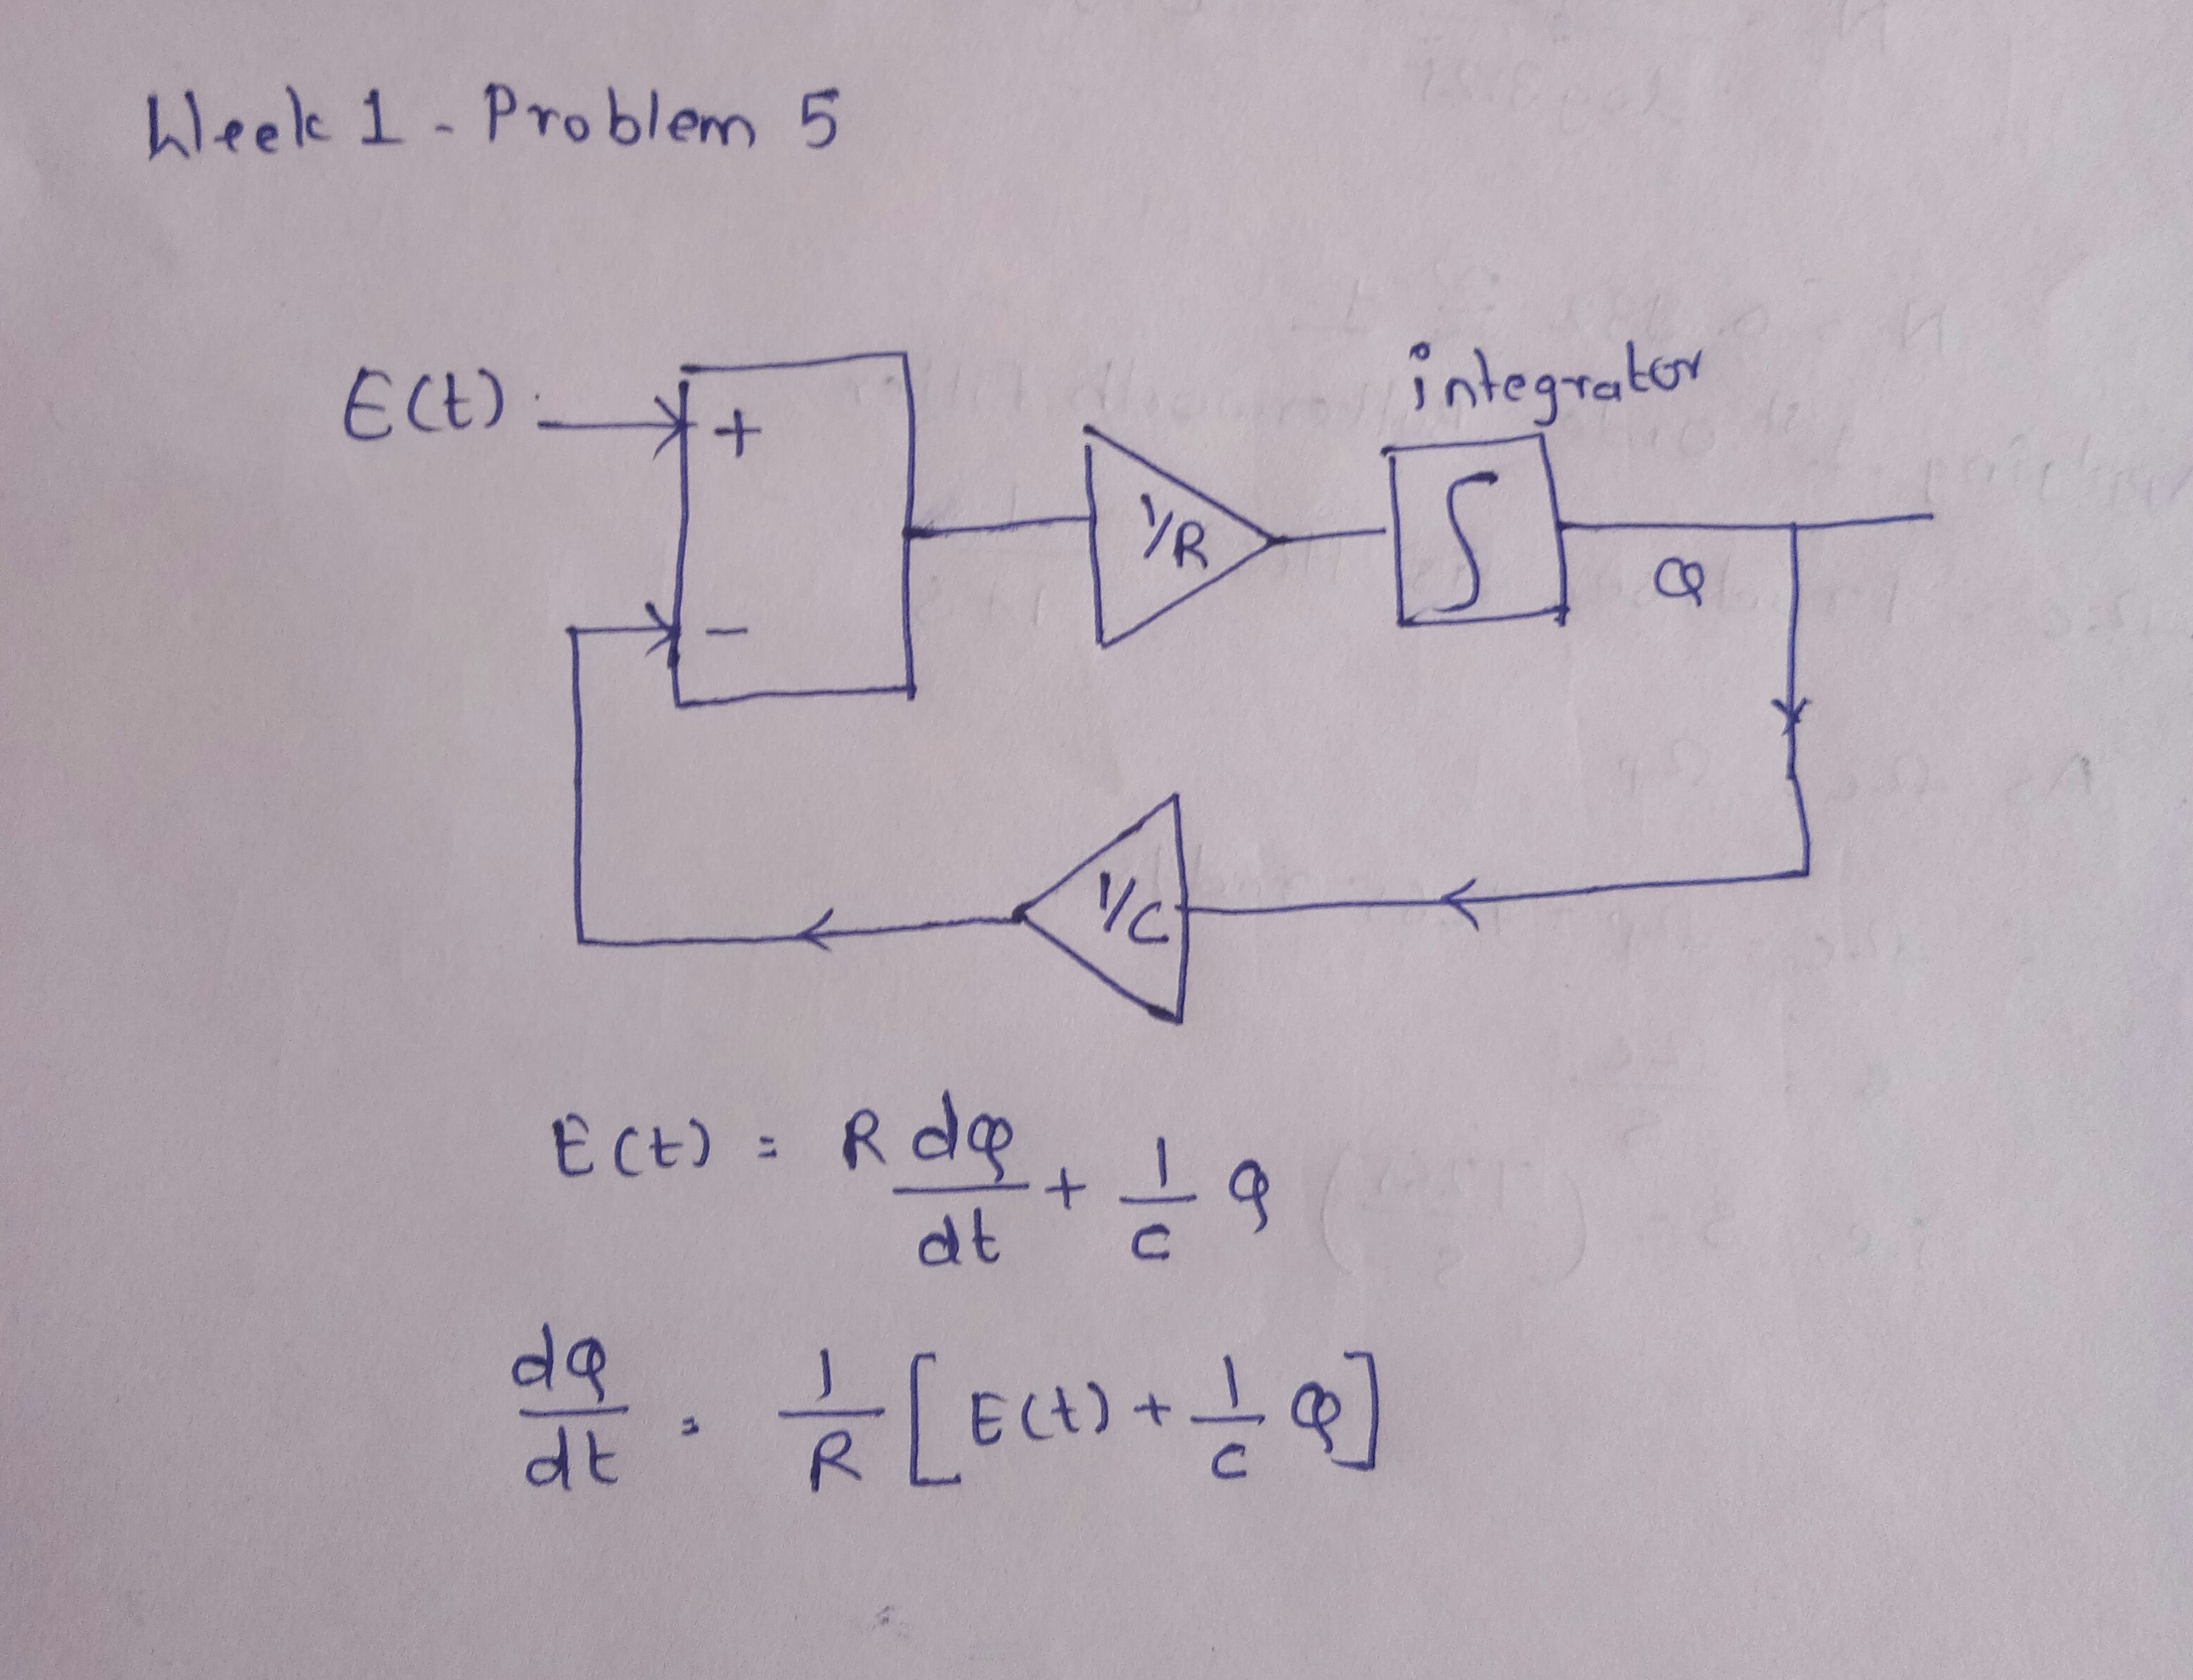 Week 1 - Problem 5
integrator
E(t)
+
1/R
∫
Q
-
1/C
E(t) = R dQ/dt + 1/C Q
dQ/dt = 1/R [E(t) + 1/C Q]